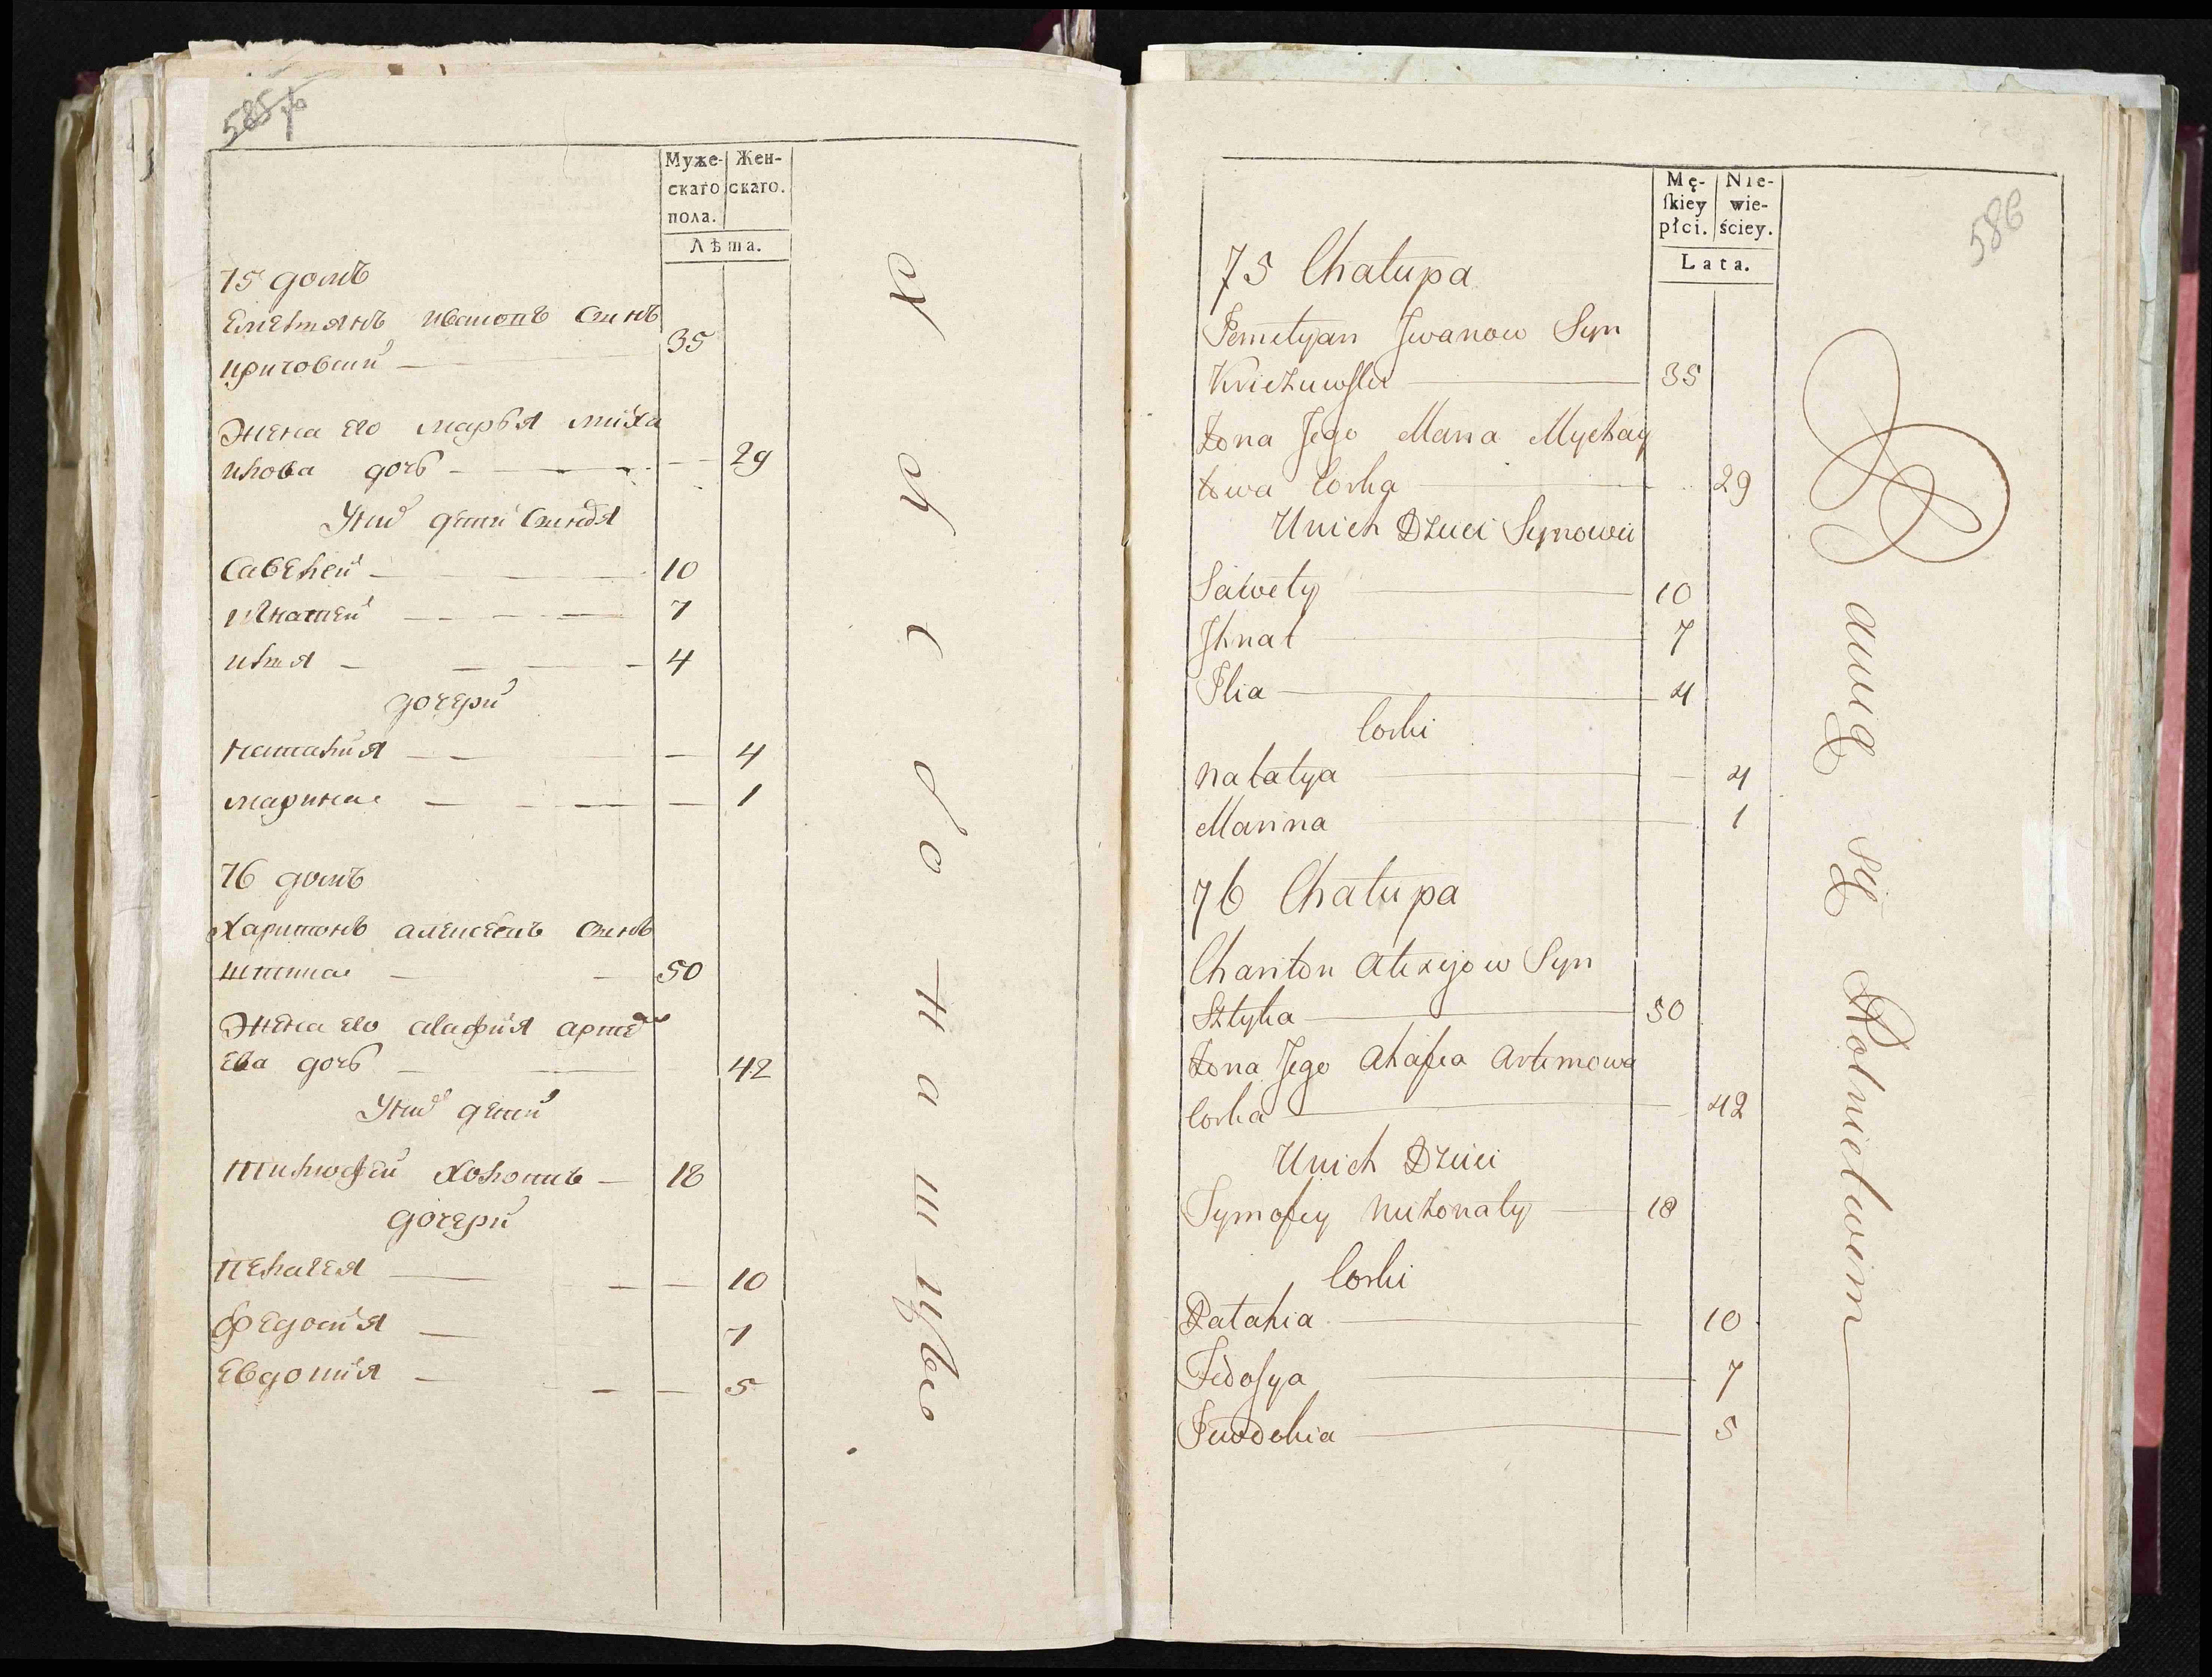 585 об
Муже-
скаго
пола.
Жен-
скаго.
Лѣта.
75 домъ
Емелянъ ивановъ синъ
кричовский 35
Жена его марья миха
илова дочь 29
У них дети синовя
Савелей 10
Игнатей 7
илия 4
дочери
наталия 4
марина 1
76 домъ
Харитонъ алексеевъ синъ
штика 50
Жена его агафия артем
ева дочь 42
У них дети
тимофей холоптъ 18
дочери
пелагея 10
федосия 7
евдокия 5
586
Mę-
ſkiey
płci.
Nie-
wie-
ściey.
Lata.
75 Chałupa
Iemelyan Jwanow Syn
Kriczuwſki 35
Żona Jego Maria Mychay
łowa Corka 29
U nich Dzieci Synowie
Sawely 10
Jhnat 7
Ilia 4
Corki
Natalya 4
Marina 1
76 Chałupa
Chariton Alexijow Syn
Sztyka 50
Żona Jego Ahafia Artimowa
Corka 42
U nich Dzieci
Tymofiy Nieżonaty 18
Corki
Palahia 10
Fedoſya 7
Iewdokia 5
Bawią się Rolnictwem